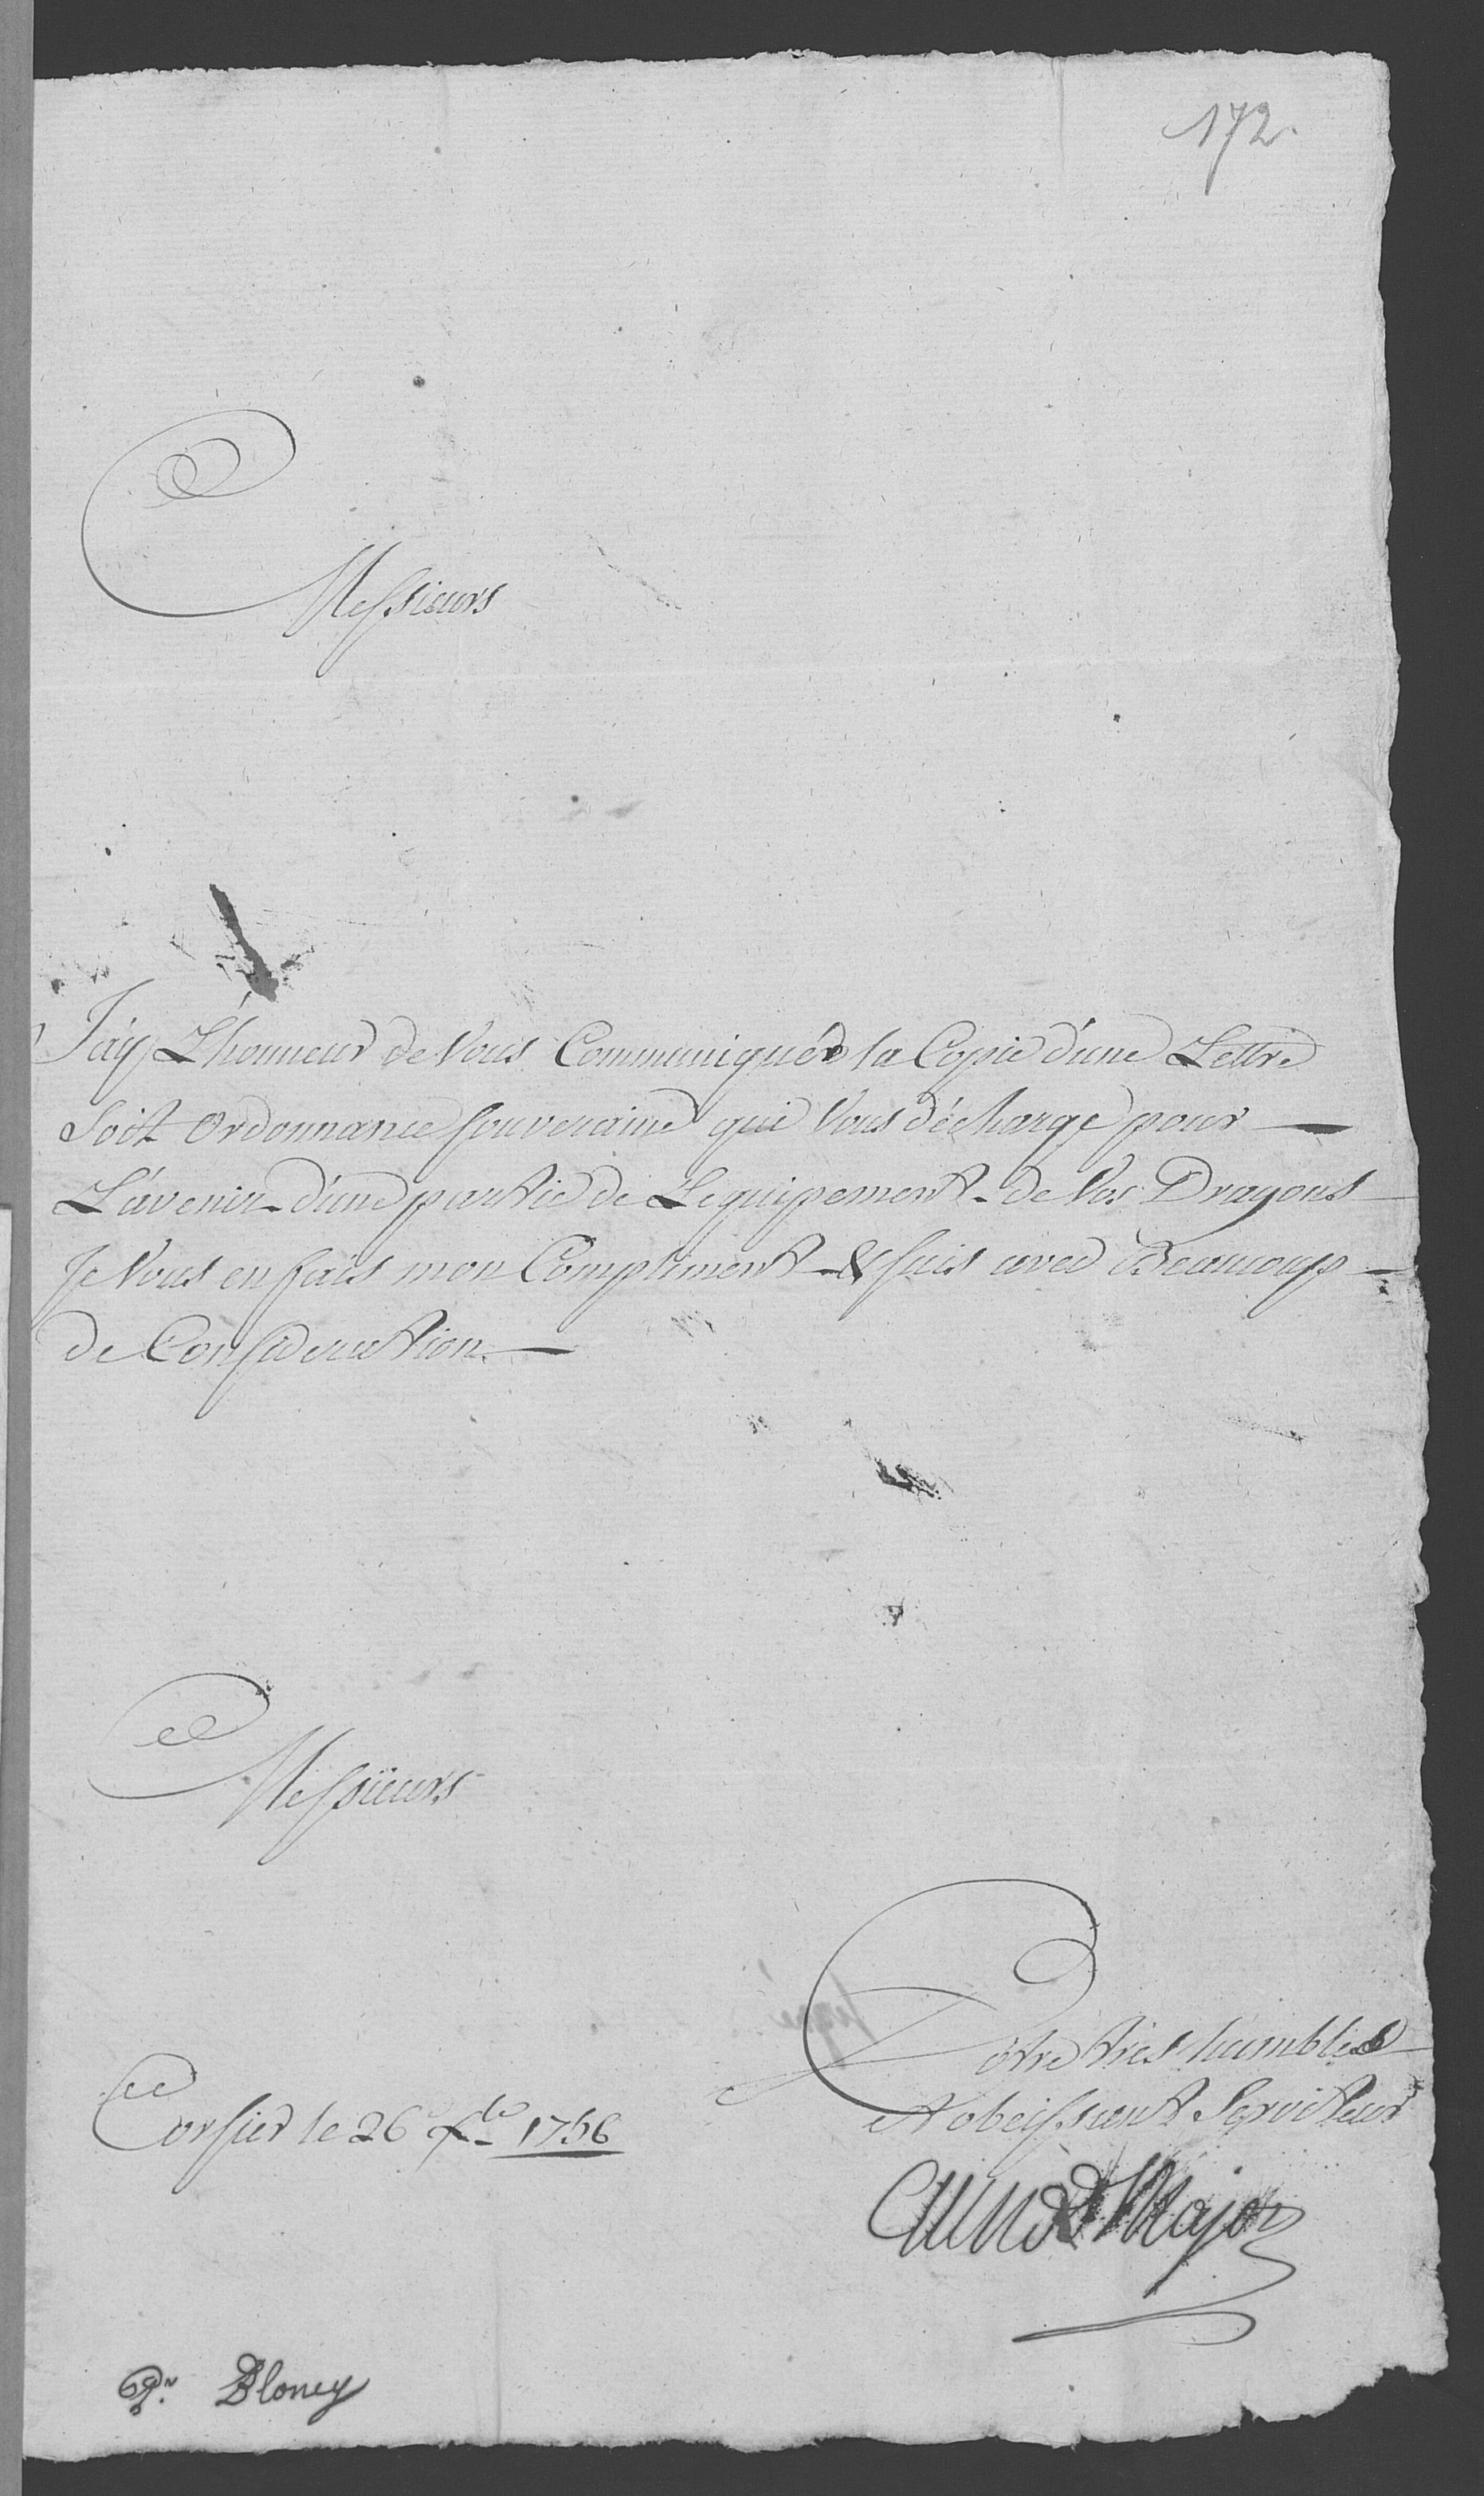 172.
Messieurs
J'ay L'honneur de Vous Communiquér la Copie d'une Lettre
Soit Ordonnance souveraine qui Vous décharge pour
L'avenir d'une partie de Lequipement de Vos Dragons
Je Vous en fais mon Compliment & suis avec Beaucoup
de Consideration
Messieurs
Vôtre tres humble
et obeissant Serviteur
Corsier le 26 Xbre 1756
Major
Pr. Bloney